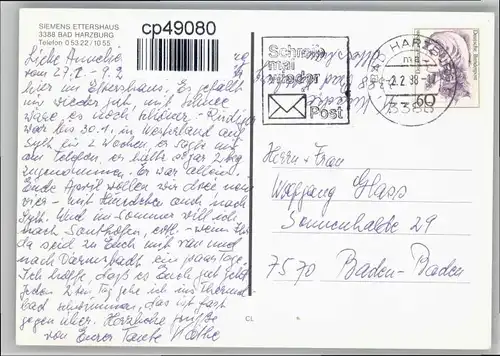 SIEMENS ETTERSHAUS
3388 BAD HARZBURG
Telefon 0 53 22 / 10 55
cp49080
Liebe Annelie
vom 27.1. - 9.2.
hier im Ettershaus. Es gefällt
uns wieder gut, mit Schnee
wäre es noch schöner.
war bis 30.1. in Westerland auf
Sylt in 2 Wochen, er sagte mir
am Telefon, er hätte sogar 2 kg
zugenommen. Er war allein.
Ende April wollen wir dort
vier - mit Hündchen auch nach
Sylt. Und im Sommer will ich
nach Sonthofen, evtl. - wenn Ihr
da seid zu Euch mit ran und
nach Darmstadt ein paar Tage.
Ich hoffe, daß es Euch gut geht
Jeden 2ten Tag gehe ich ins Thermal-
bad schwimmen, das ist fast
gegen über. Herzliche Grüße
von Eurer Tante Käthe
Schreib
mal
wieder
Post
BAD HARZBURG
-2.2.88
3388
60
Deutsche Bundespost
Herrn + Frau
Wolfgang Glass
Sonnenhalde 29
7570 Baden-Baden
CL